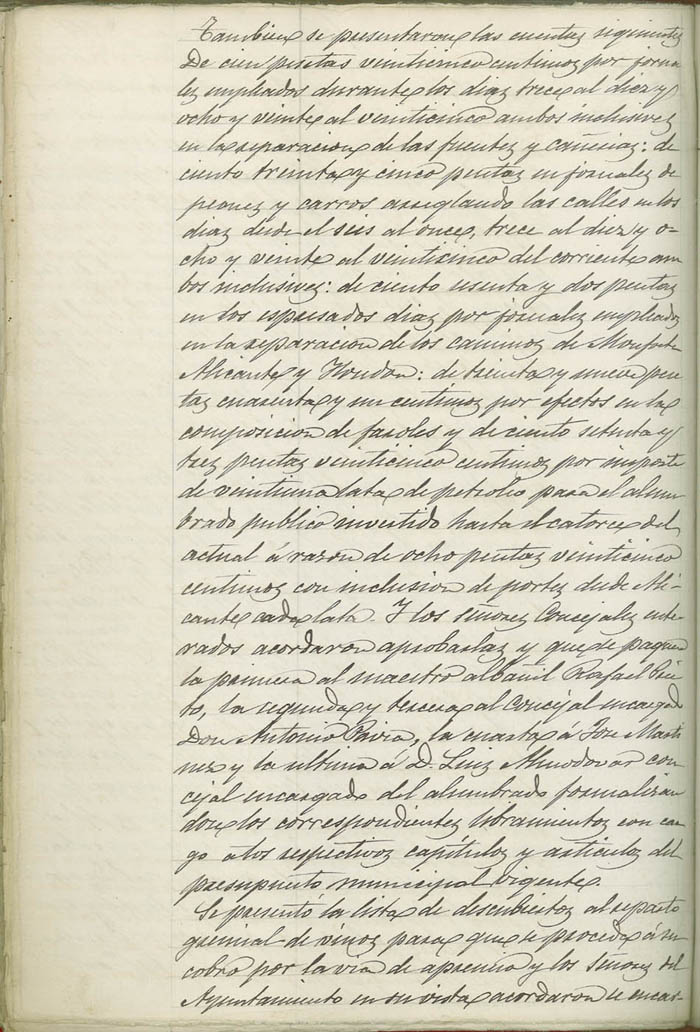 Tambien se presentaron las cuentas siguientes
De cien pesetas veinticinco centimos por jorna
les empleados durante los dias trece al diez y
ocho y veinte al veinticinco ambos inclusives
en la reparacion de las fuentes y cañerias: de
ciento treinta y cinco pesetas en jornales de
peones y carros arreglando las calles en los
dias desde el seis al once, trece al diez y o-
cho y veinte al veinticinco del corriente am
bos inclusives: de ciento sesenta y dos pesetas
en los espresados dias por jornales empleados
en la reparacion de los caminos de Monforte
Alicante y Hondon: de treinta y nueve pese
tas cuarenta y un centimos por efectos en la
composicion de faroles y de ciento setenta y
tres pesetas veinticinco centimos por importe
de veintiuna latas de petroleo para el alum
brado publico invertido hasta el catorce del
actual á razon de ocho pesetas veinticinco
centimos con inclusion de portes desde Ali-
cante cada lata. Y los señores Concejales ente
rados acordaron aprobarlas y que se paguen
la primera al maestro albañil Rafael Prie
to, la segunda y tercera al Concejal encargado
Don Antonio Pavia, la cuarta á José Marti
nez y la ultima á D. Luis Almodovar con
cejal encargado del alumbrado formalizan
dose los correspondientes libramientos con car
go a los respectivos capitulos y articulos del
presupuesto municipal vigente.
Se presentó la lista de descubiertos al reparto
gremial de vinos para que se proceda á su
cobro por la via de apremio y los señores del
Ayuntamiento en su vista acordaron se encar-